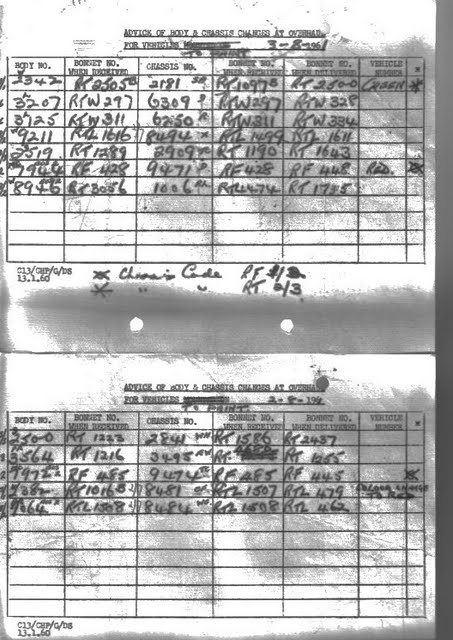 ADVICE OF BODY & CHASSIS CHANGES AT OVERHAUL
FOR VEHICLES 3-8-1961
TO PAINT
BODY NO. BONNET NO. WHEN RECEIVED CHASSIS NO. BONNET NO. WHEN RECEIVED BONNET NO. WHEN DELIVERED VEHICLE NUMBER *
2342 RT 2505 2181 RT 1097 RT 2500 GREEN
3207 RTW 297 6309 RTW 297 RTW 328
3725 RTW 311 6250 RTW 311 RTW 334
9211 RTL 1616 8494 RTL 1499 RTL 1611
3519 RT 1289 3909 RT 1190 RT 1643
7944 RF 428 9471 RF 428 RF 448 RED.
8946 RT 3056 1006 RT 1735
C13/CHP/G/DS
13.1.60
Chassis Code RF
" " RT 2/3
ADVICE OF BODY & CHASSIS CHANGES AT OVERHAUL
FOR VEHICLES 2-8-1961
TO PAINT
BODY NO. BONNET NO. WHEN RECEIVED CHASSIS NO. BONNET NO. WHEN RECEIVED BONNET NO. WHEN DELIVERED VEHICLE NUMBER *
2500 RT 1223 2841 RT 1586 RT 2437
3564 RT 1216 3495 RT 1255
7972 RF 485 9474 RF 485 RF 445
RT 1016 8481 RTL 1507 RTL 479 COLOUR CHANGE TO RED
9064 RTL 1508 8484 RTL 1508 RTL 462
C13/CHP/G/DS
13.1.60